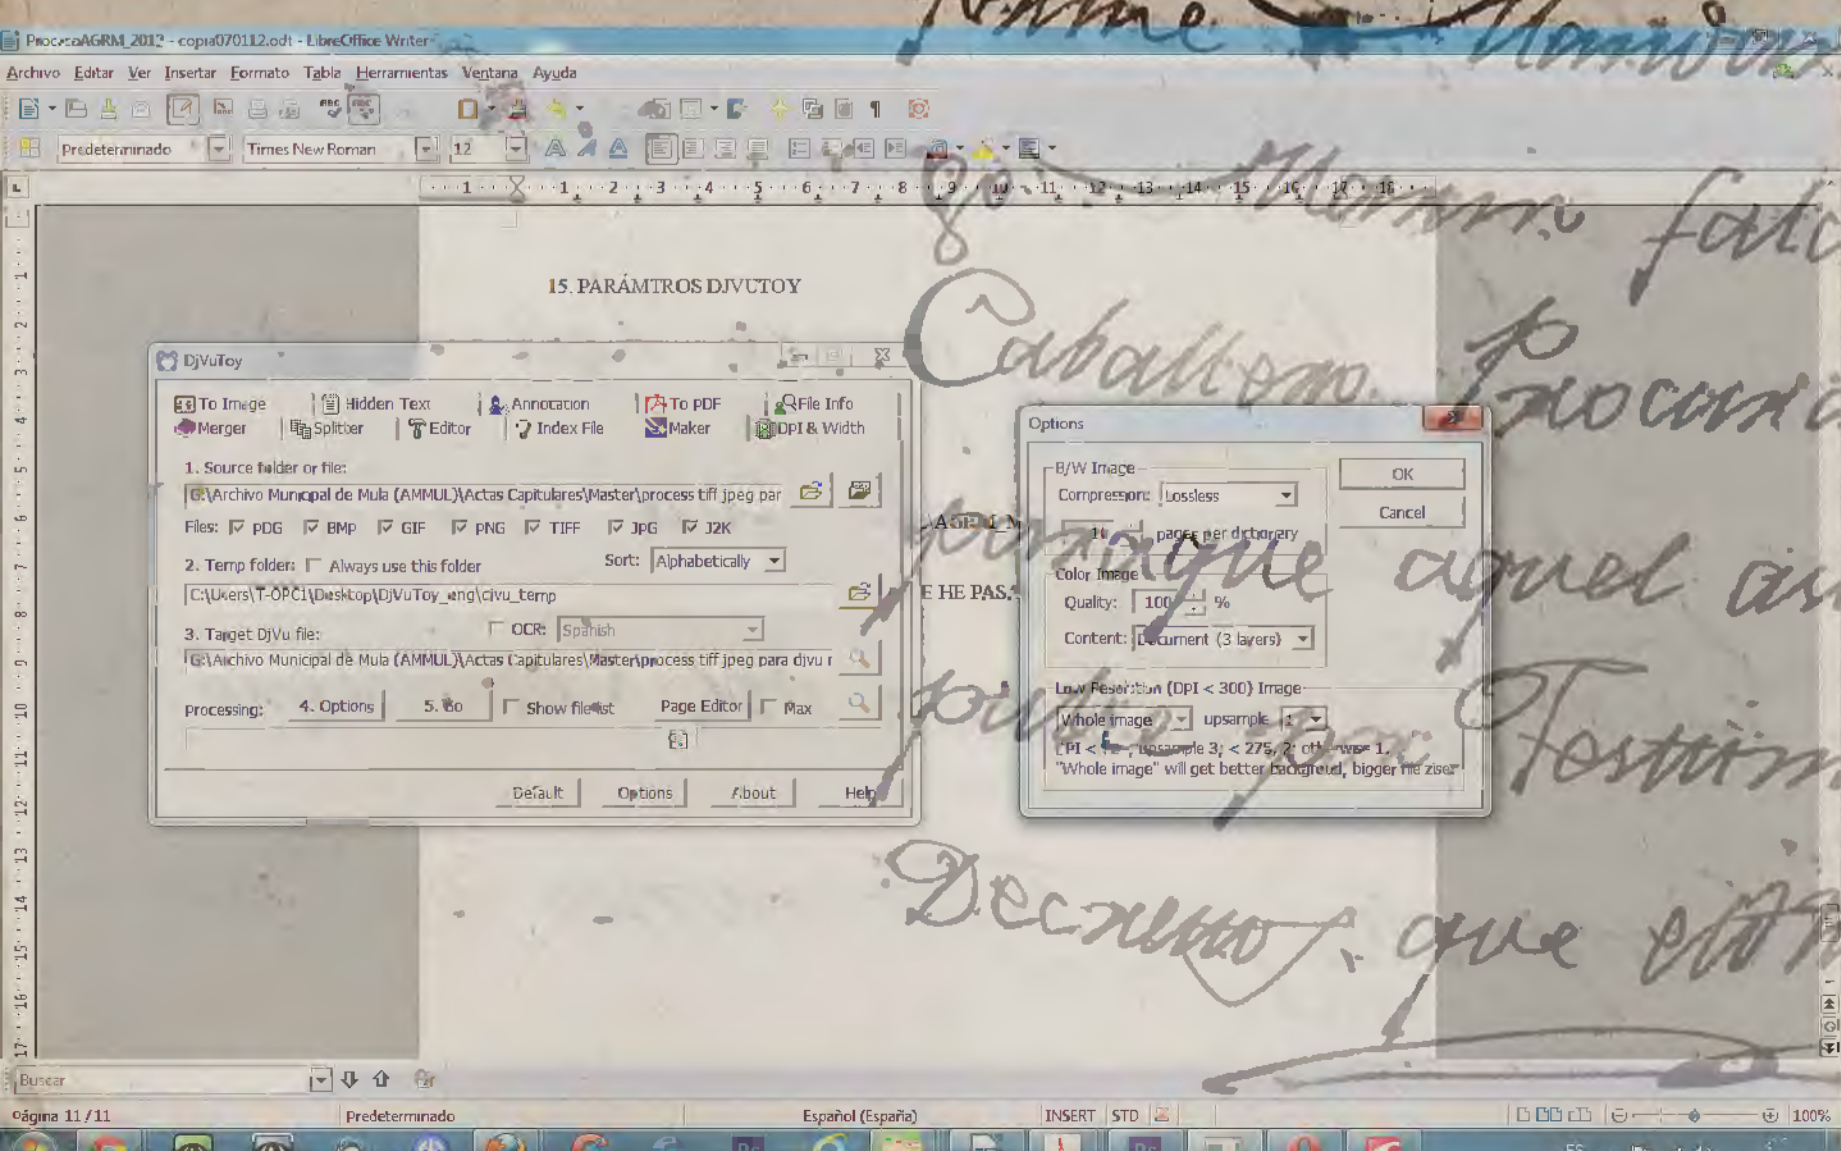 ProcesoAGRM_2012 - copia070112.odt - LibreOffice Writer
Archivo Editar Ver Insertar Formato Tabla Herramientas Ventana Ayuda
Predeterminado Times New Roman 12
1 1 2 3 4 5 6 7 8 9 10 11 12 13 14 15 16 17 18
15. PARÁMTROS DJVUTOY
DjVuToy
To Image Hidden Text Annotation To PDF File Info
Merger Splitter Editor Index File Maker DPI & Width
1. Source folder or file:
G:\Archivo Municipal de Mula (AMMUL)\Actas Capitulares\Master\process tiff jpeg par
Files: PDG BMP GIF PNG TIFF JPG J2K
2. Temp folder: Always use this folder Sort: Alphabetically
C:\Users\T-OPC1\Desktop\DjVuToy_eng\djvu_temp
3. Target DjVu file: OCR: Spanish
G:\Archivo Municipal de Mula (AMMUL)\Actas Capitulares\Master\process tiff jpeg para djvu r
Processing: 4. Options 5. Go Show filelist Page Editor Max
Default Options About Help
E HE PAS
Options
B/W Image
Compression: Lossless
OK
Cancel
10 pages per dictionary
Color Image
Quality: 100 %
Content: Document (3 layers)
Low Resolution (DPI < 300) Image
Whole image upsample 1
upsample 3; < 275, 2; otherwise 1.
"Whole image" will get better background, bigger file zise.
Caballero
para que aquel
que
Buscar
Página 11 / 11 Predeterminado Español (España) INSERT STD 100%
ES